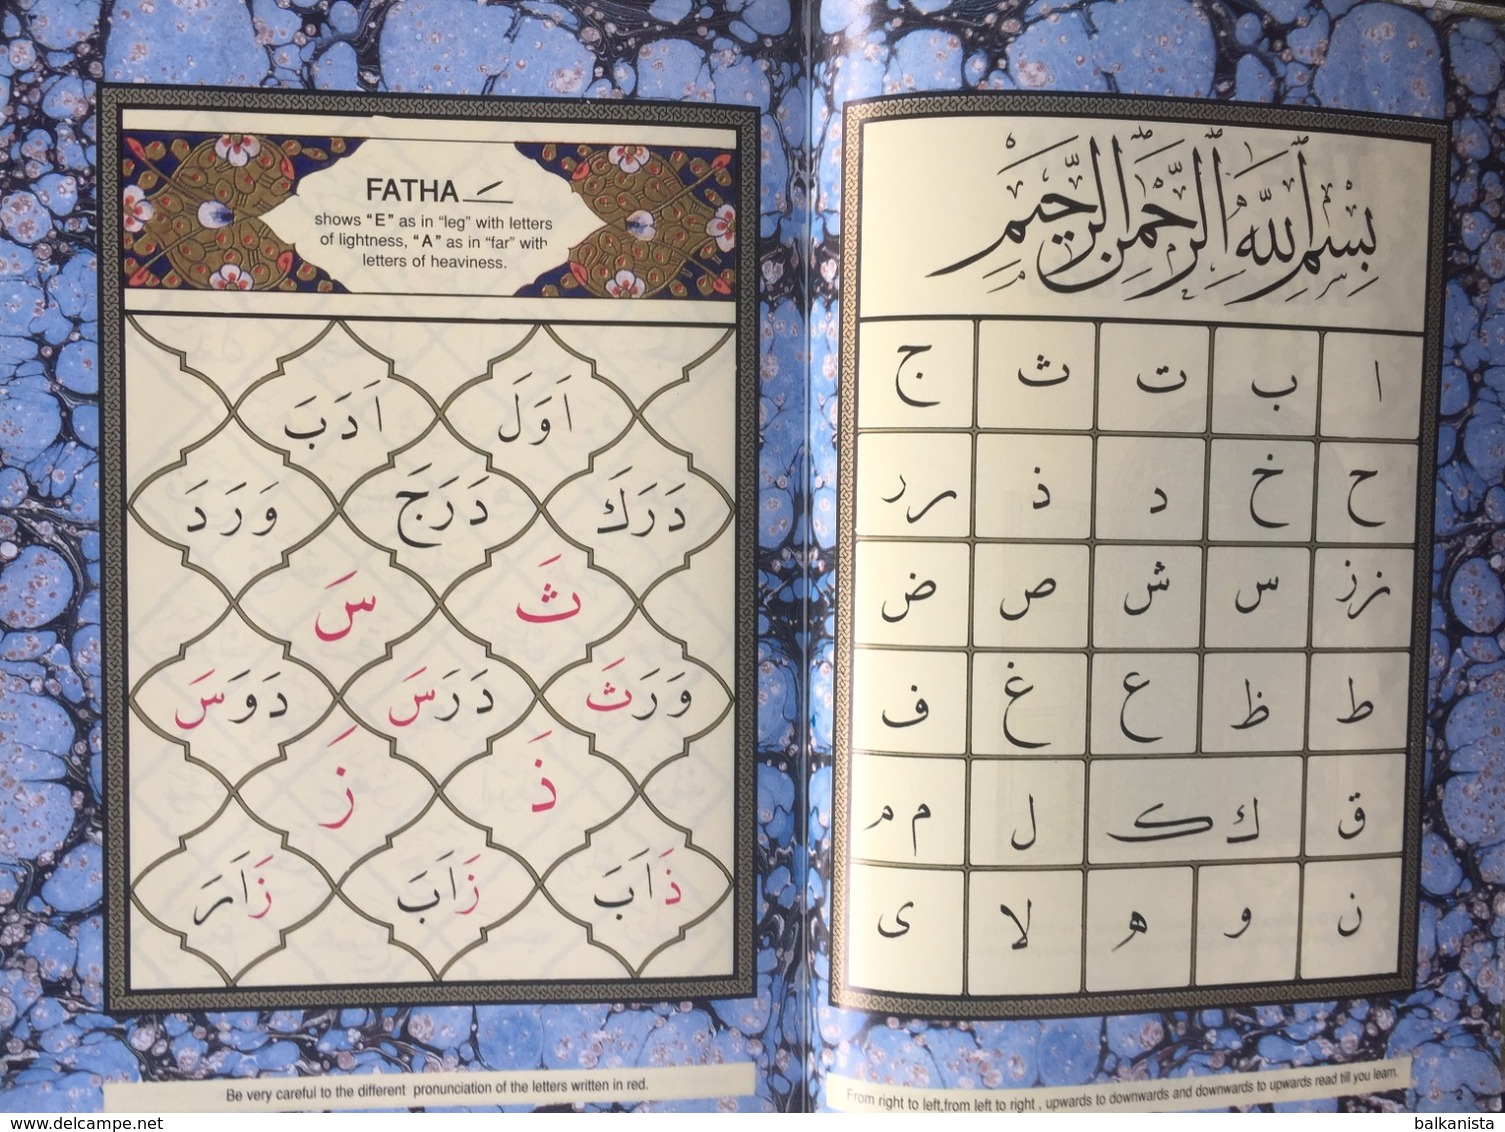 بِسْمِ اللَّهِ الرَّحْمٰنِ الرَّحِيمِ
ا ب ت ث ج
ح خ د ذ ر ر
ز ز س ش ص ض
ط ظ ع غ ف
ق ك ك ل م م
ن و ه لا ى
From right to left,from left to right , upwards to downwards and downwards to upwards read till you learn.
2
FATHA َ
shows “E” as in “leg” with letters
of lightness, “A” as in “far” with
letters of heaviness.
اَوَلَ اَدَبَ
دَرَكَ دَرَجَ وَرَدَ
ثَ سَ
وَرَثَ دَرَسَ دَوَسَ
ذَ زَ
ذَابَ زَابَ زَارَ
Be very careful to the different pronunciation of the letters written in red.
www.delcampe.net
balkanista